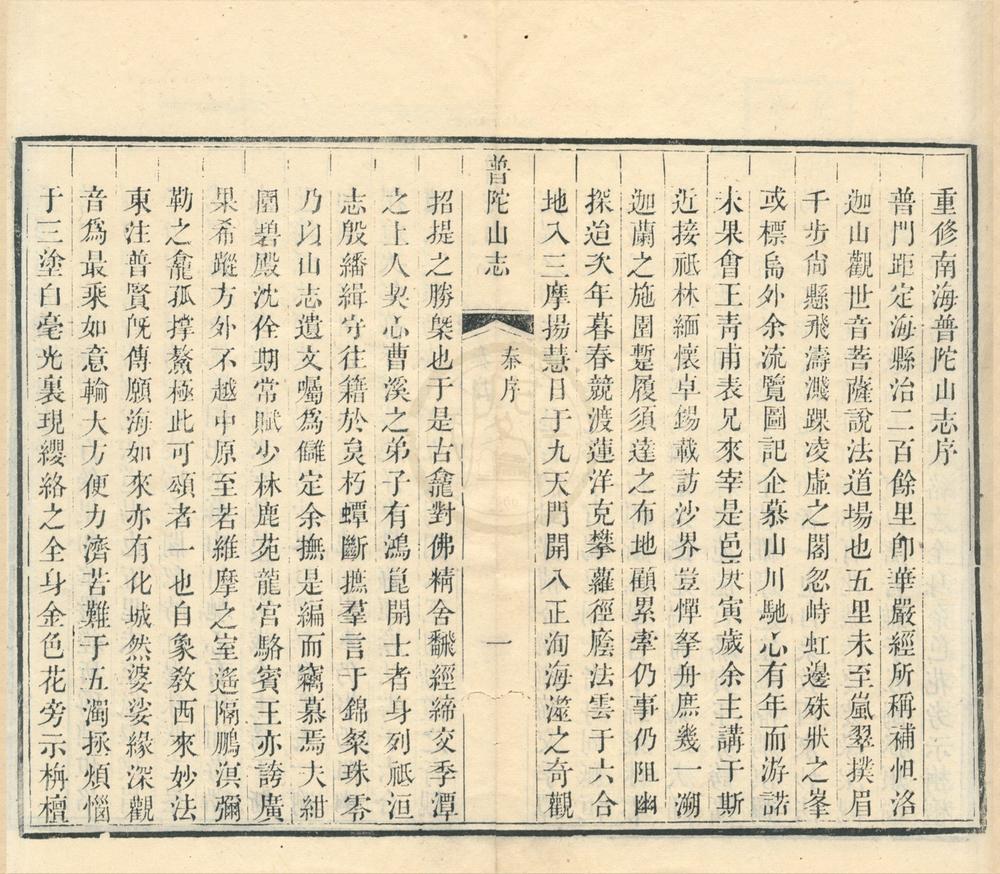 重修南海普陀山志序
普門距定海縣治二百餘里卽華嚴經所稱補怛洛
迦山觀世音菩薩說法道場也五里未至嵐翠撲眉
千步尙懸飛濤濺踝凌虛之閣忽峙虹邊殊狀之峯
或標島外余流覽圖記企慕山川馳心有年而游諾
未果會王靑甫表兄來宰是邑庚寅歲余主講于斯
近接祇林緬懷卓錫載訪沙界豈憚拏舟庶幾一溯
迦蘭之施園蹔履須達之布地顧累牽仍事仍阻幽
探迨次年暮春競渡蓮洋克攀蘿徑廕法雲于六合
地入三摩揚慧日于九天門開八正洵海澨之奇觀
普陀山志
秦序
一
招提之勝槩也于是古龕對佛精舍飜經締交季潭
之上人契心曹溪之弟子有鴻崑開士者身列祇洹
志殷繙緝守往籍於炱朽蟫斷摭羣言于錦粲珠零
乃以山志遺文囑爲讎定余撫是編而竊慕焉夫紺
園碧殿沈佺期常賦少林鹿苑龍宮駱賓王亦誇廣
果希蹤方外不越中原至若維摩之室遙隔鵬溟彌
勒之龕孤撐鰲極此可頌者一也自象敎西來妙法
東注普賢旣傳願海如來亦有化城然婆娑緣深觀
音爲最乘如意輪大方便力濟苦難于五濁拯煩惱
于三塗白毫光裏現纓絡之全身金色花旁示栴檀